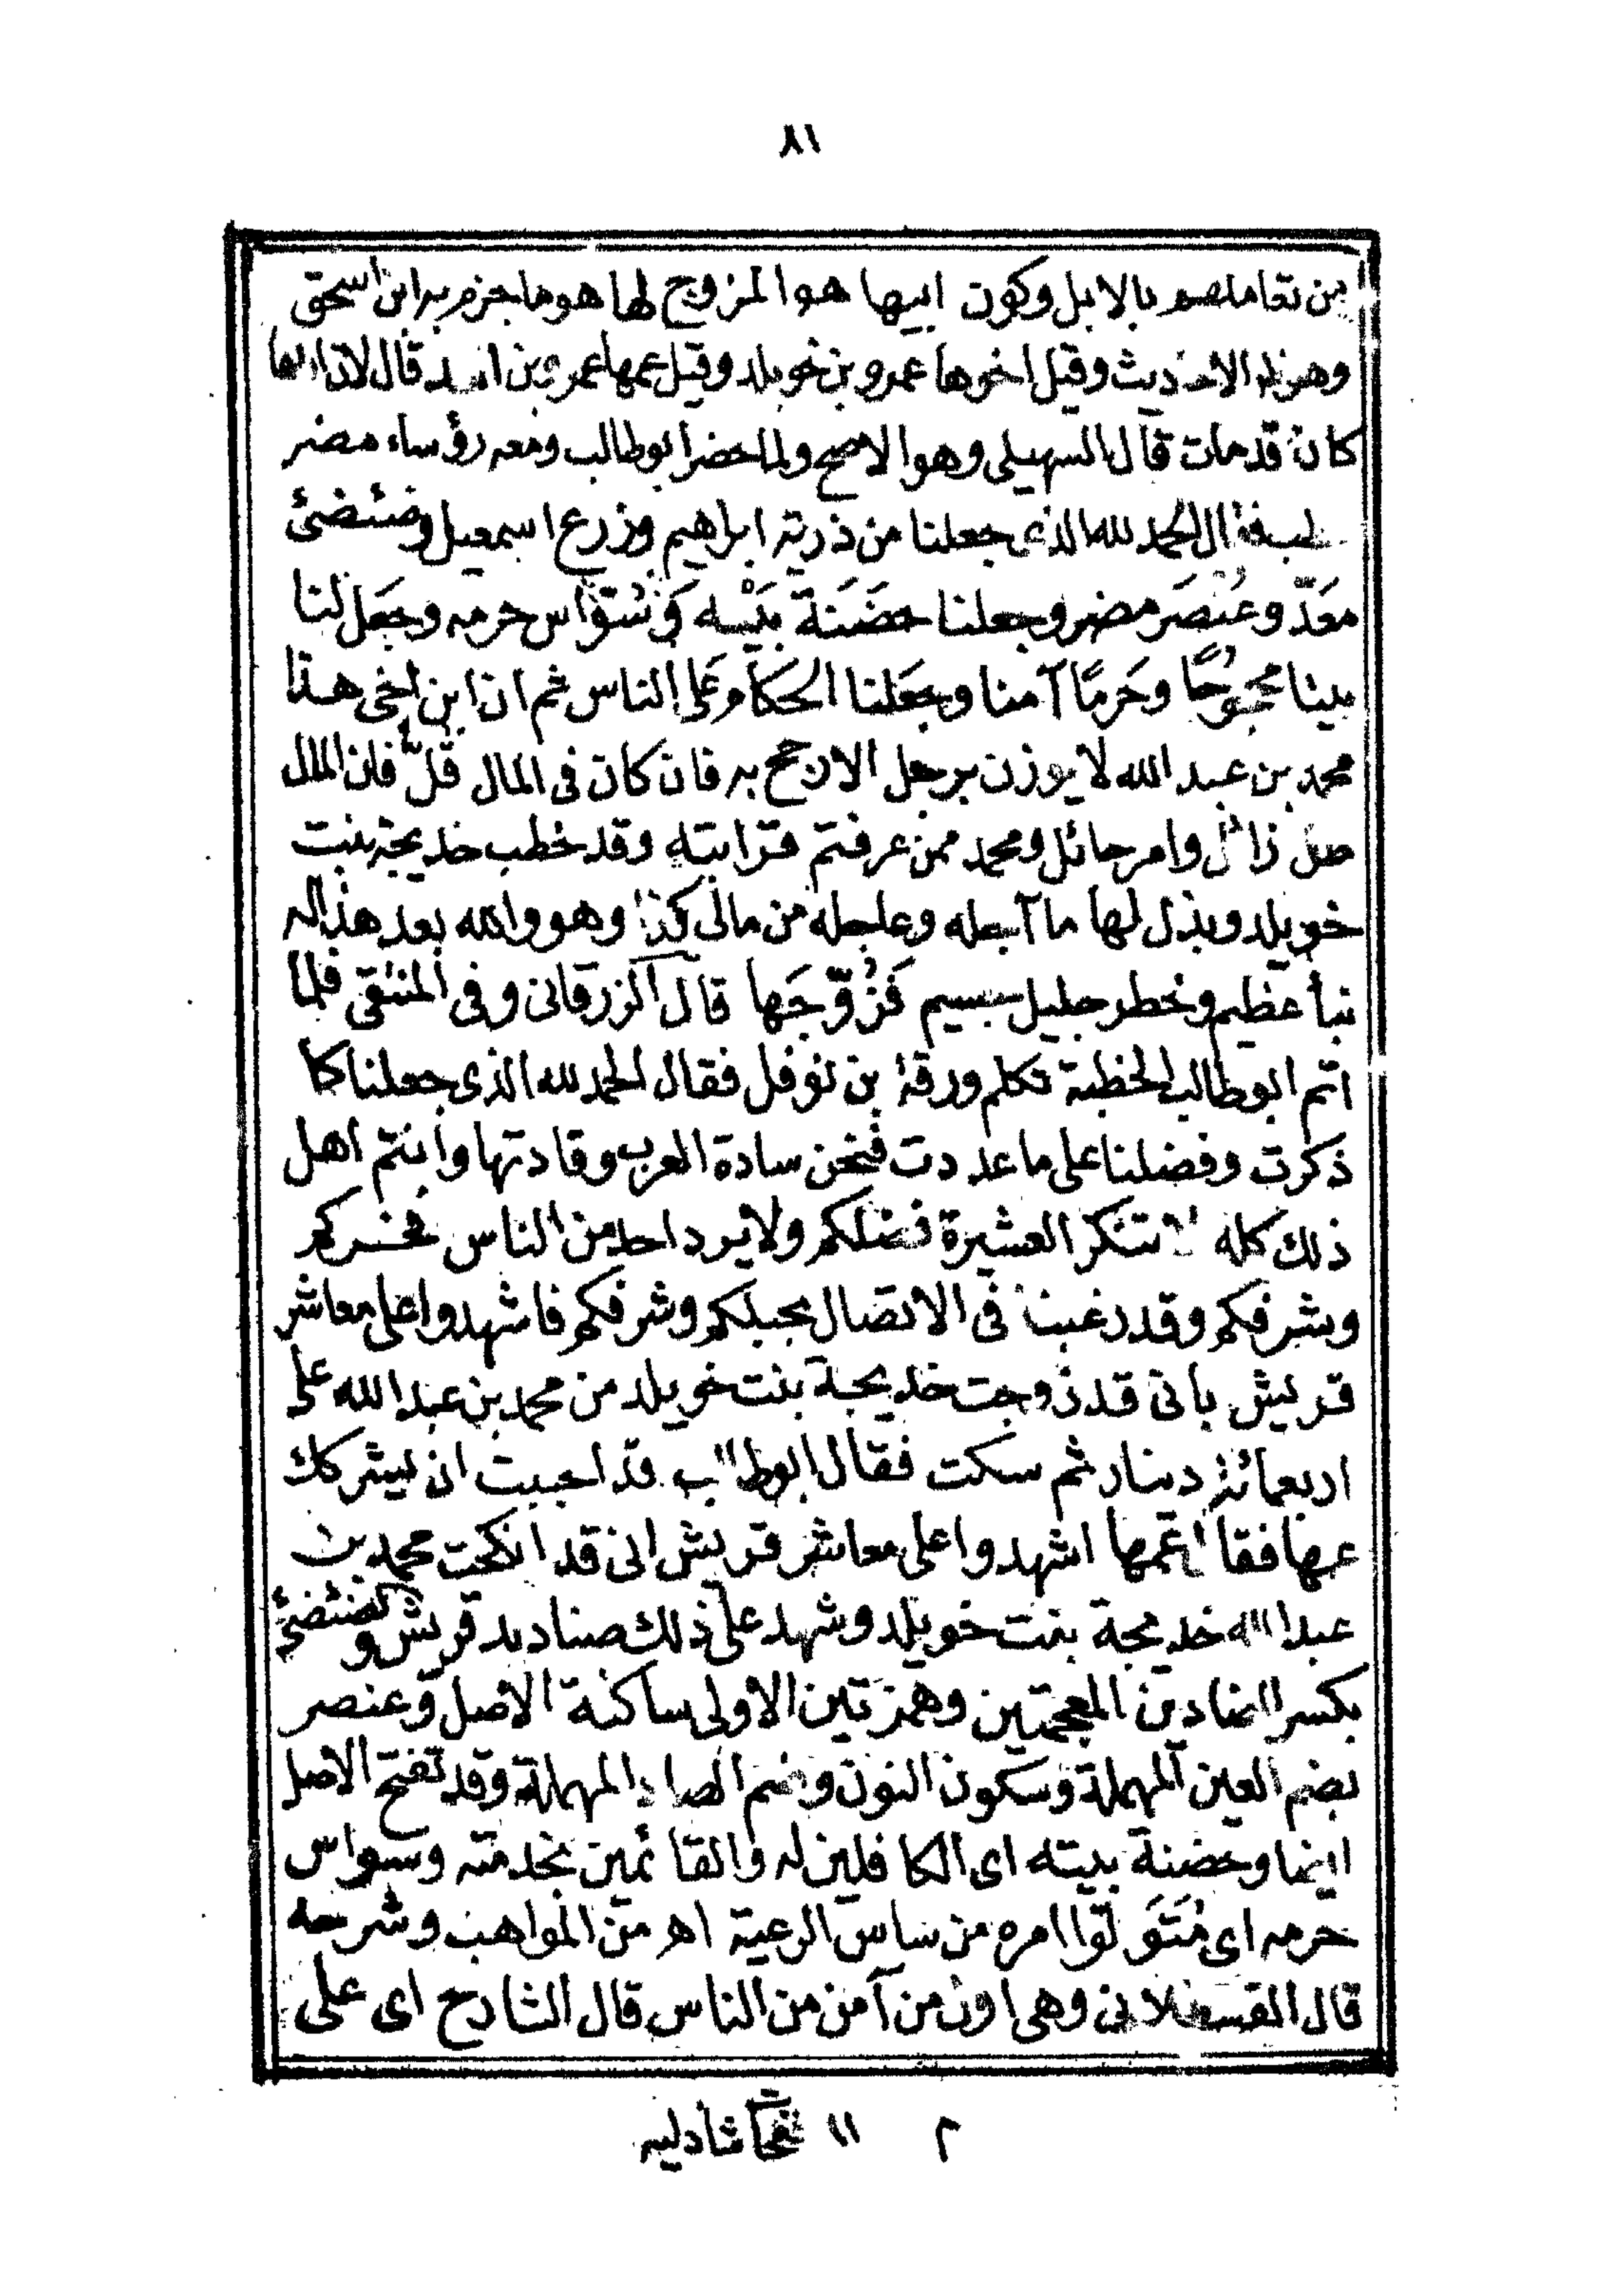 ٨١
من تعاملهم بالابل وكون ابيها هو المزوج لها هو ما جزم به ابن اسحق
وهو ظاهر الاحاديث وقيل اخوها عمرو بن خويلد وقيل عمها عمرو بن اسد قال لان اباها
كان قد مات قال السهيلى وهو الاصح ولما حضر ابو طالب ومعه رؤساء مضر
خطب فقال الحمد لله الذى جعلنا من ذرية ابراهيم وزرع اسمعيل وضئضئ
معَدّ وعُنصَر مضر وجعلنا حضَنَة بَيْته وسُوّاس حرمه وجعَل لنا
بيتا محجوُجًا وحَرمًا آمنا وجعَلنا الحكام على الناس ثم ان ابن اخى هذا
محمد بن عبد الله لا يوزن برجل الا رجح به فان كان فى المال قُلّ فان المال
ظل زائل وامر حائل ومحمد ممن عرفتم قرابته وقد خطب خديجة بنت
خويلد وبذل لها ما آجله وعاجله من مالى كذا وهو والله بعد هذا له
نبأ عظيم وخطر جليل جسيم فَزُوّجَها قال الزرقانى وفى المنتقى فلما
اتم ابو طالب الخطبة تكلم ورقة بن نوفل فقال الحمد لله الذى جعلنا كما
ذكرت وفضلنا على ما عددت فنحن سادة العرب وقادتها وانتم اهل
ذلك كله لا تنكر العشيرة فضلكم ولا يرد احد من الناس فخركم
وشرفكم وقد رغبنا فى الاتصال بحبلكم وشرفكم فاشهدوا على معاشر
قريش بانى قد زوجت خديجة بنت خويلد من محمد بن عبد الله على
اربعمائة دينار ثم سكت فقال ابو طالب قد احببت ان يشركك
عمها فقال عمها اشهدوا على معاشر قريش انى قد انكحت محمد بن
عبد الله خديجة بنت خويلد وشهد على ذلك صناديد قريش والضئضئ
بكسر الضادين المعجمتين وهمزتين الاولى ساكنة الاصل وعنصر
بضم العين المهملة وسكون النون وضم الصاد المهملة وقد تفتح الاصل
ايضا وحضنة بيته اى الكافلين له والقائمين بخدمته وسواس
حرمه اى مُتَوَلّوا امره من ساس الرعية اهـ من المواهب وشرحه
قال القسطلانى وهى اول من آمن من الناس قال الشارح اى على
م ١١ نفحات شاذليه